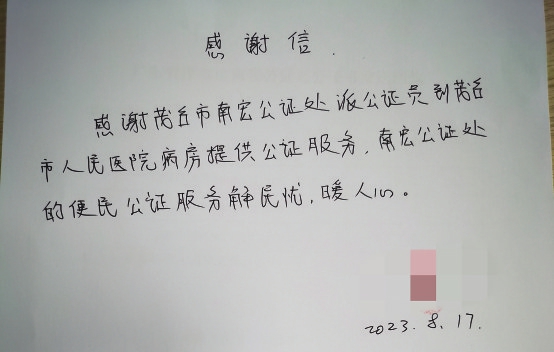 感谢信.
感谢茂名市南宏公证处派公证员到茂名
市人民医院病房提供公证服务,南宏公证处
的便民公证服务解民忧,暖人心。
2023.8.17.